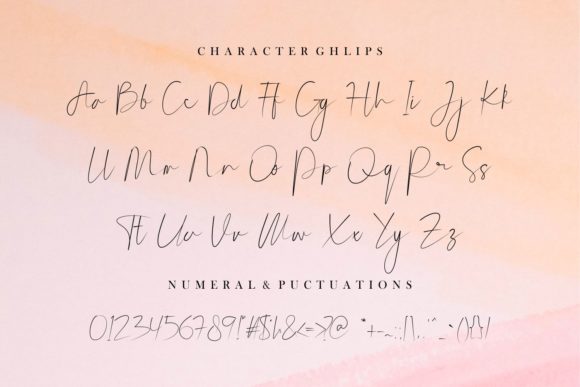 CHARACTER GHLIPS
Aa Bb Cc Dd Ff Gg Hh Ii Jj Kk
Ll Mm Nn Oo Pp Qq Rr Ss
Tt Uu Vv Ww Xx Yy Zz
NUMERAL & PUCTUATIONS
0123456789!"#$%&<=>?@ *+-~;:/|\,.'"^_`(){}/